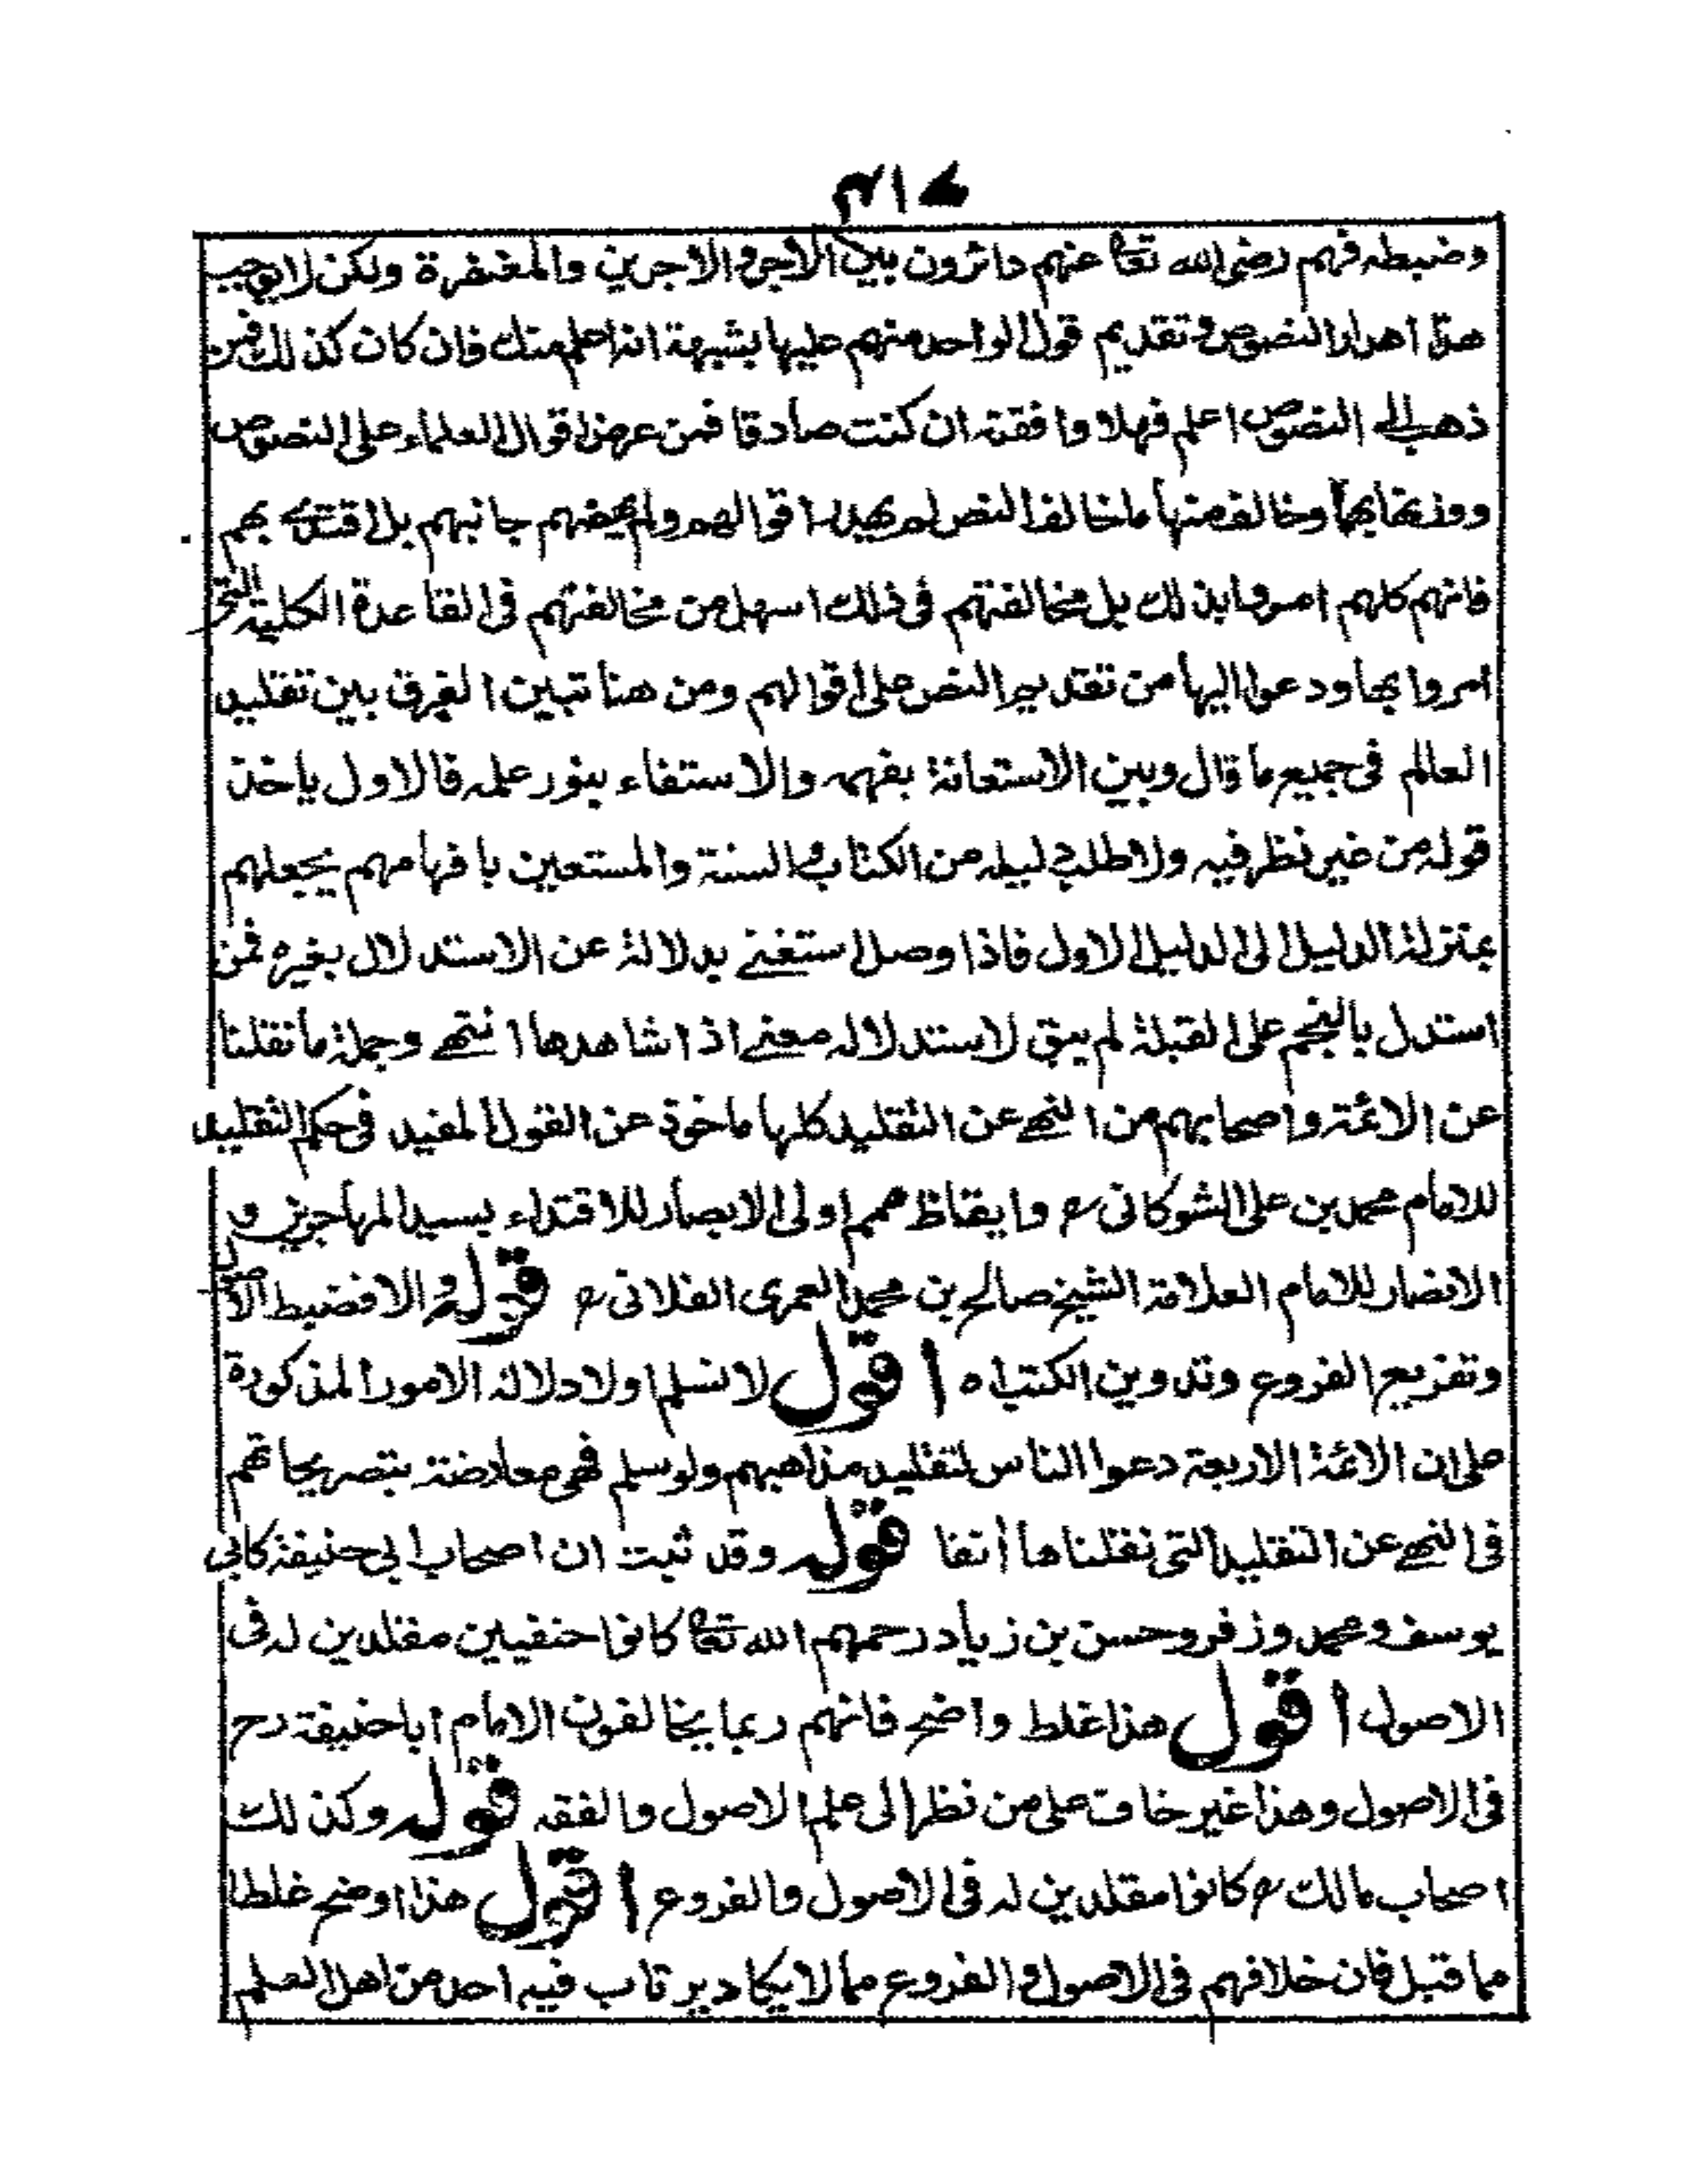 وضبطه فهم رضى الله تعا عنهم دائرون بين الاجر والاجرين والمغفرة ولكن لا يوجب
هذا اهدار النصوص وتقديم قول الواحد منهم عليها بشبهة انه اعلم منك فان كان كذلك فمن
ذهب الى النصوص اعلم فهلا وافقته ان كنت صادقا فمن عرض اقوال العلماء على النصوص
ووزنها بها وخالف منها ما خالف النص لم يهدر اقوالهم ولم يهضم جانبهم بل اقتدى بهم
فانهم كلهم امروا بذلك بل مخالفتهم فى ذلك اسهل من مخالفتهم فى القاعدة الكلية التى
امروا بها ودعوا اليها من تقديم النص على اقوالهم ومن هنا تبين الفرق بين تقليد
العالم فى جميع ما قال وبين الاستعانة بفهمه والاستفاء بنور علمه فالاول ياخذ
قوله من غير نظر فيه ولا طلب دليله من الكتاب والسنة والمستعين بافهامهم يجعلهم
بمنزلة الدليل الى الدليل الاول فاذا وصل استغنى بدلالة عن الاستدلال بغيره فمن
استدل بالنجم على القبلة لم يبق لاستدلاله معنى اذا شاهدها انتهى وجملة ما نقلنا
عن الائمة واصحابهم من النهى عن التقليد كلها ماخوذ عن القول المفيد فى حكم التقليد
للامام محمد بن على الشوكانى رح وايقاظ همم اولى الابصار للاقتداء بسيد المهاجرين و
الانصار للامام العلامة الشيخ صالح بن محمد العمرى الفلانى رح قوله والا فضبط الاصول
وتفريع الفروع وتدوين الكتب اه اقول لا نسلم اولا دلالة الامور المذكورة
على ان الائمة الاربعة دعوا الناس لتقليد مذاهبهم ولو سلم فهى معارضة بتصريحاتهم
فى النهى عن التقليد التى نقلناها أنفا قوله وقد ثبت ان اصحاب ابى حنيفة كابى
يوسف ومحمد وزفر وحسن بن زياد رحمهم الله تعا كانوا حنفيين مقلدين له فى
الاصول اقول هذا غلط واضح فانهم ربما يخالفون الامام ابا حنيفة رح
فى الاصول وهذا غير خاف على من نظر الى علم الاصول والفقه قوله وكذلك
اصحاب مالك رح كانوا مقلدين له فى الاصول والفروع اقول هذا اوضح غلطا
مما قبل فان خلافهم فى الاصول والفروع مما لا يكاد يرتاب فيه احد من اهل العلم